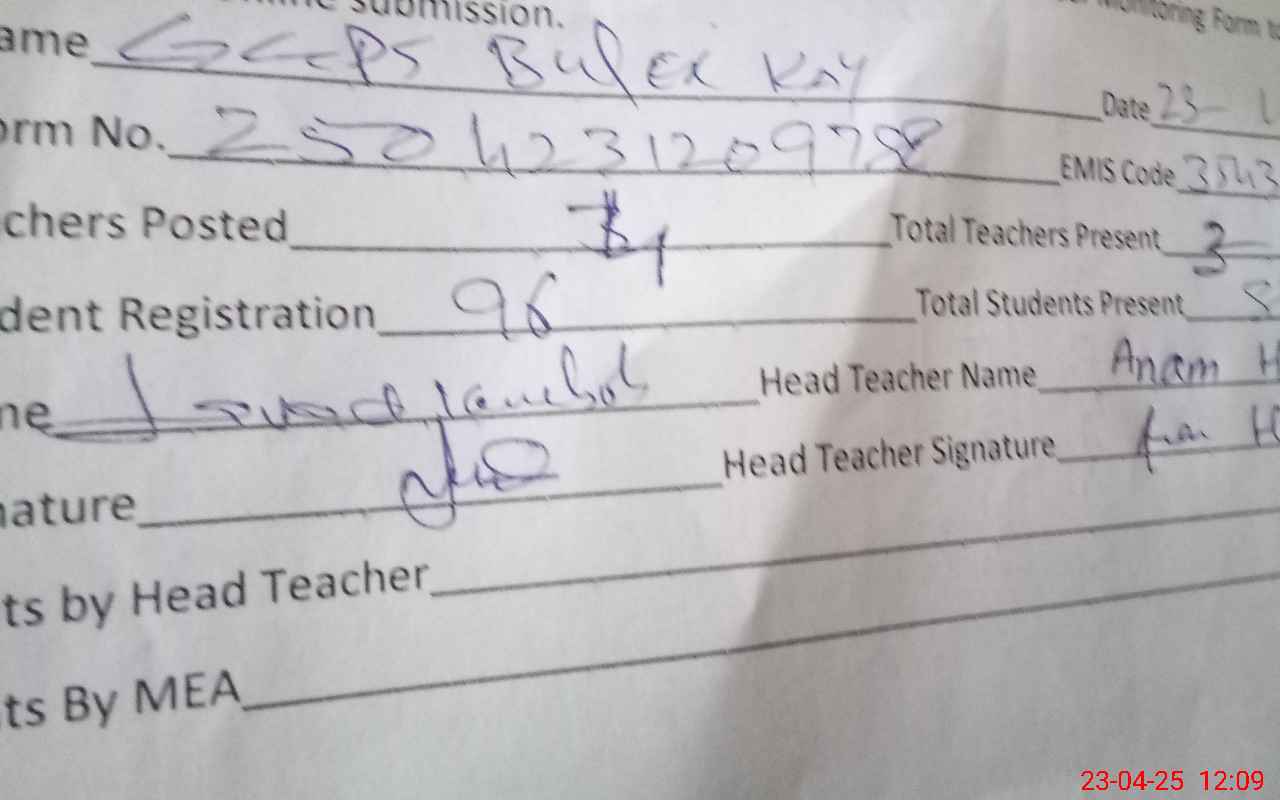 submission. Monitoring Form to
ame GCPS Bulex Kay Date 23-
orm No. 2504231209798 EMIS Code 3543
chers Posted 4 Total Teachers Present 3
dent Registration 96 Total Students Present
ne Head Teacher Name Anam H
nature Head Teacher Signature
ts by Head Teacher
ts By MEA
23-04-25 12:09